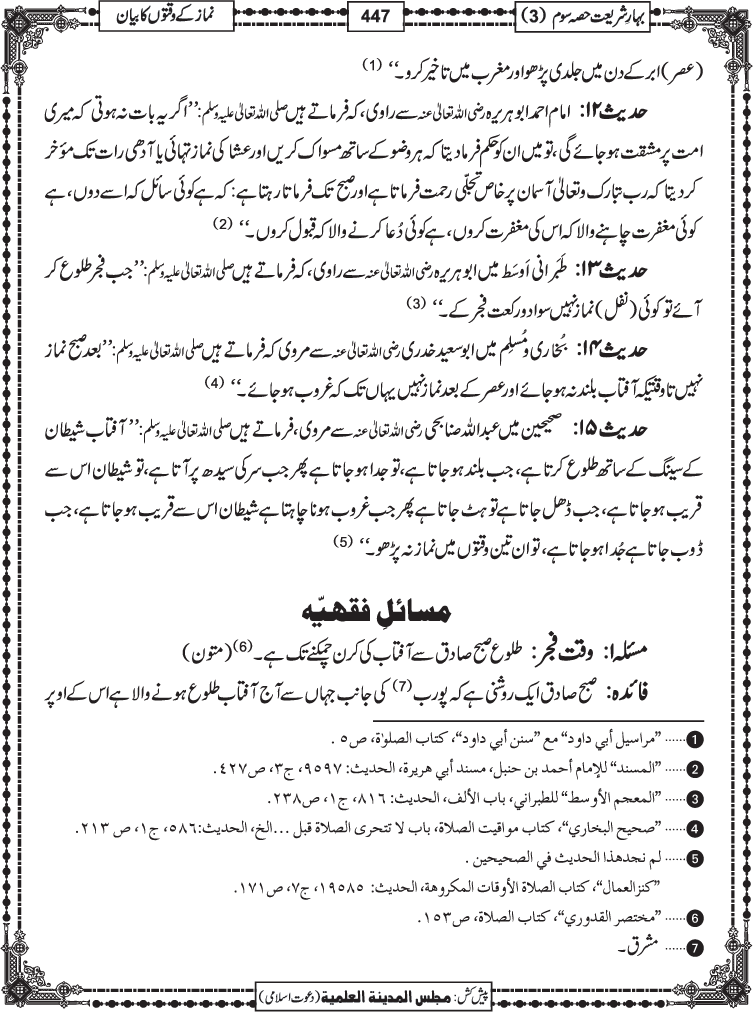 بہار شریعت حصہ سوم (3)
447
نماز کے وقتوں کا بیان
(عصر) ابر کے دن میں جلدی پڑھو اور مغرب میں تاخیر کرو۔‘‘ (1)
حدیث ۱۲: امام احمد ابوہریرہ رضی اللہ تعالیٰ عنہ سے راوی، کہ فرماتے ہیں صلی اللہ تعالیٰ علیہ وسلم: ’’اگر یہ بات نہ ہوتی کہ میری
امت پر مشقت ہو جائے گی، تو میں ان کو حکم فرما دیتا کہ ہر وضو کے ساتھ مسواک کریں اور عشا کی نماز تہائی یا آدھی رات تک مؤخر
کر دیتا کہ رب تبارک و تعالیٰ آسمان پر خاص تجلّی رحمت فرماتا ہے اور صبح تک فرماتا رہتا ہے: کہ ہے کوئی سائل کہ اسے دوں، ہے
کوئی مغفرت چاہنے والا کہ اس کی مغفرت کروں، ہے کوئی دُعا کرنے والا کہ قبول کروں۔‘‘ (2)
حدیث ۱۳: طَبَرانی اَوسَط میں ابوہریرہ رضی اللہ تعالیٰ عنہ سے راوی، کہ فرماتے ہیں صلی اللہ تعالیٰ علیہ وسلم: ’’جب فجر طلوع کر
آئے تو کوئی (نفل) نماز نہیں سوا دو رکعت فجر کے۔‘‘ (3)
حدیث ۱۴: بُخاری و مُسلِم میں ابوسعید خدری رضی اللہ تعالیٰ عنہ سے مروی کہ فرماتے ہیں صلی اللہ تعالیٰ علیہ وسلم: ’’بعد صبح نماز
نہیں تا وقتیکہ آفتاب بلند نہ ہو جائے اور عصر کے بعد نماز نہیں یہاں تک کہ غروب ہو جائے۔‘‘ (4)
حدیث ۱۵: صحیحین میں عبداللہ صنابحی رضی اللہ تعالیٰ عنہ سے مروی، فرماتے ہیں صلی اللہ تعالیٰ علیہ وسلم: ’’آفتاب شیطان
کے سینگ کے ساتھ طلوع کرتا ہے، جب بلند ہو جاتا ہے، تو جدا ہو جاتا ہے پھر جب سر کی سیدھ پر آتا ہے، تو شیطان اس سے
قریب ہو جاتا ہے، جب ڈھل جاتا ہے تو ہٹ جاتا ہے پھر جب غروب ہونا چاہتا ہے شیطان اس سے قریب ہو جاتا ہے، جب
ڈوب جاتا ہے جُدا ہو جاتا ہے، تو ان تین وقتوں میں نماز نہ پڑھو۔‘‘ (5)
مسائلِ فقھیّہ
مسئلہ ۱: وقت فجر: طلوع صبح صادق سے آفتاب کی کرن چمکنے تک ہے۔ (6) (متون)
فائدہ: صبح صادق ایک روشنی ہے کہ پورب (7) کی جانب جہاں سے آج آفتاب طلوع ہونے والا ہے اس کے اوپر
1 ...... ”مراسیل أبي داود“ مع ”سنن أبي داود“، کتاب الصلوٰة، ص۵ .
2 ...... ”المسند“ للإمام أحمد بن حنبل، مسند أبي هريرة، الحديث: ۹۵۹۷، ج۳، ص۴۲۷.
3 ...... ”المعجم الأوسط“ للطبراني، باب الألف، الحديث: ۸۱۶، ج۱، ص۲۳۸.
4 ...... ”صحيح البخاري“، كتاب مواقيت الصلاة، باب لا تتحرى الصلاة قبل ...الخ، الحديث:۵۸۶، ج۱، ص ۲۱۳.
5 ...... لم نجدهذا الحديث في الصحيحين .
”كنزالعمال“، كتاب الصلاة الأوقات المكروهة، الحديث: ۱۹۵۸۵، ج۷، ص۱۷۱.
6 ...... ”مختصر القدوري“، كتاب الصلاة، ص۱۵۳.
7 ...... مشرق۔
پیش کش: مجلس المدینة العلمیة (دعوت اسلامی)